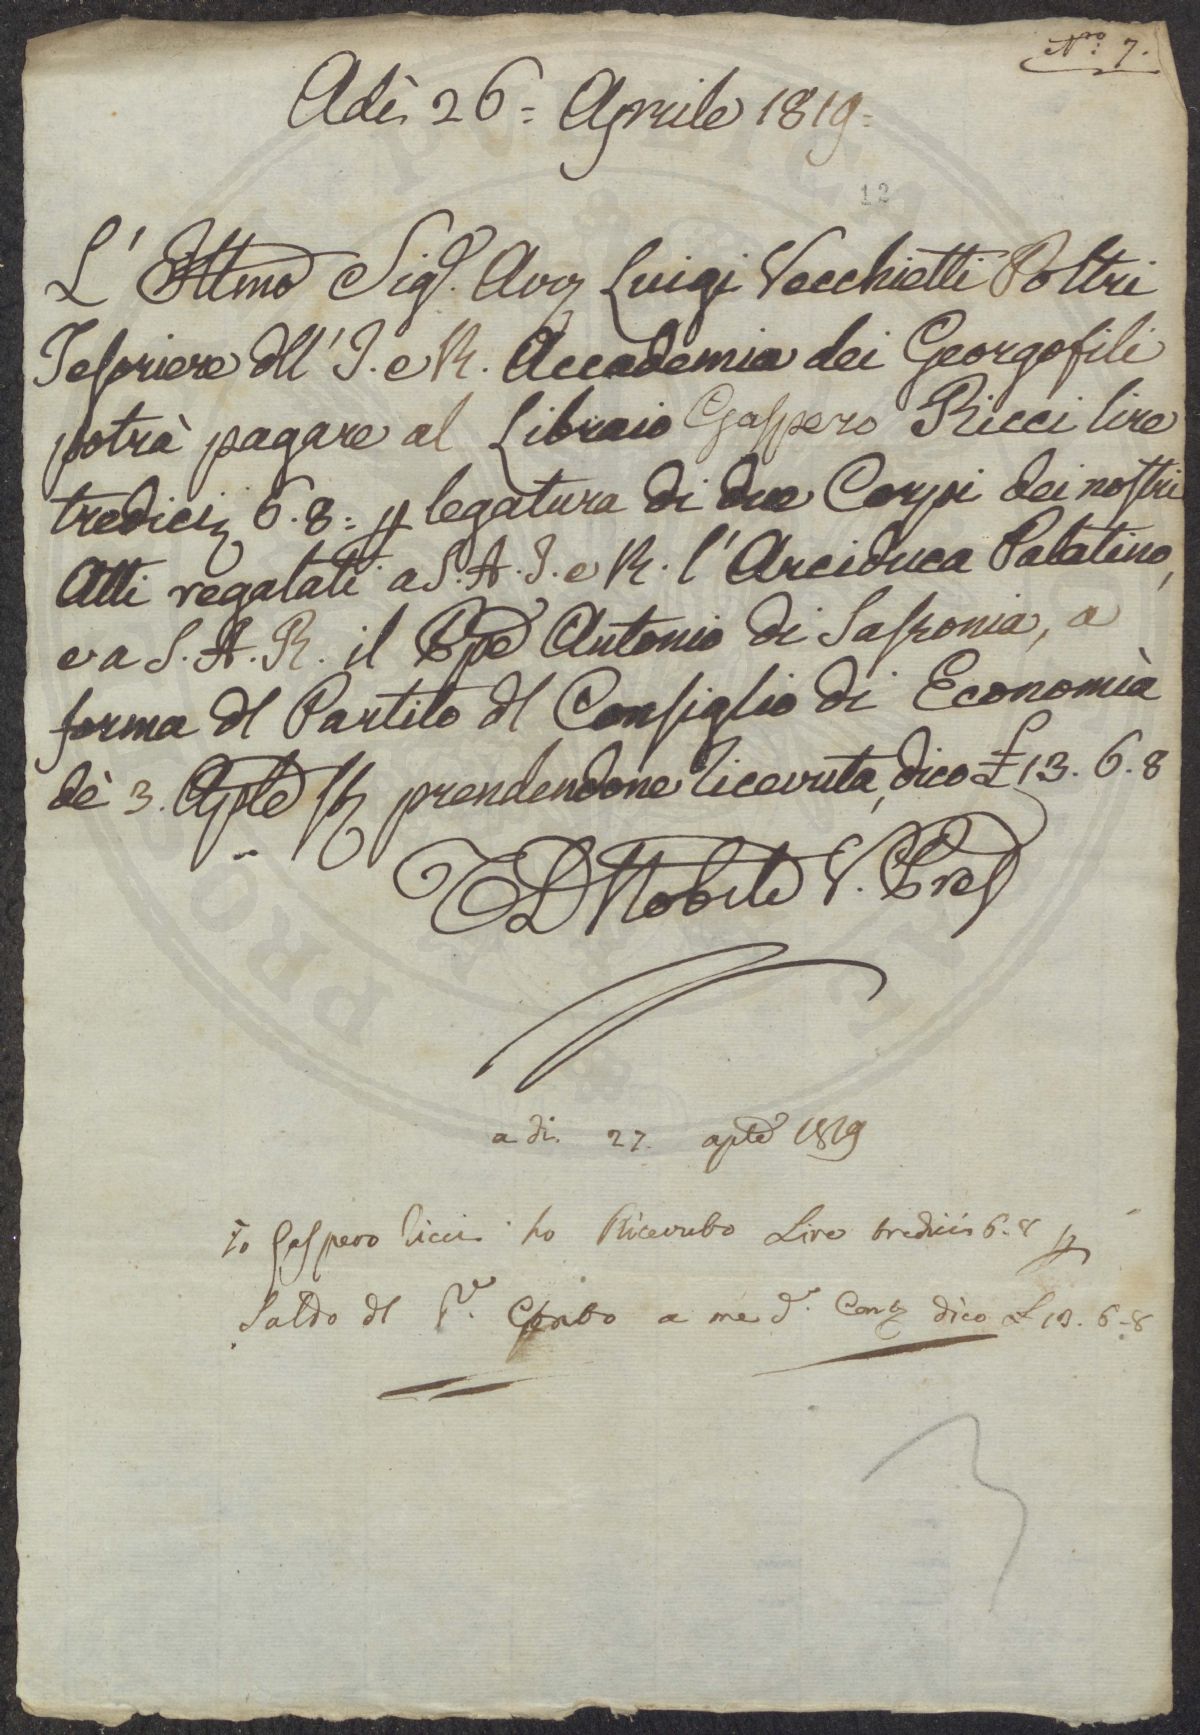 Nro. 7.
Adì 26 = Aprile 1819 =
12
L' Illmo Sigr. Avv Luigi Vecchietti Poltri
Tesoriere dll' I. e R. Accademia dei Georgofili
potrà pagare al Libraio Gaspero Ricci lire
tredici 6.8 = p legatura di due Corpi dei nostri
Atti regalati a S. A. I. e R. l' Arciduca Palatino,
e a S. A. R. il Ppe Antonio di Sassonia, a
forma dl Partito dl Consiglio di Economia
dè 3. Aple prendendone ricevuta, dico £ 13. 6. 8
Nobili V. Pres
a di. 27. aple 1819
Io Gaspero Ricci ho Ricevuto Lire tredici 6.8 p
Saldo dl a me dico £ 13. 6 - 8